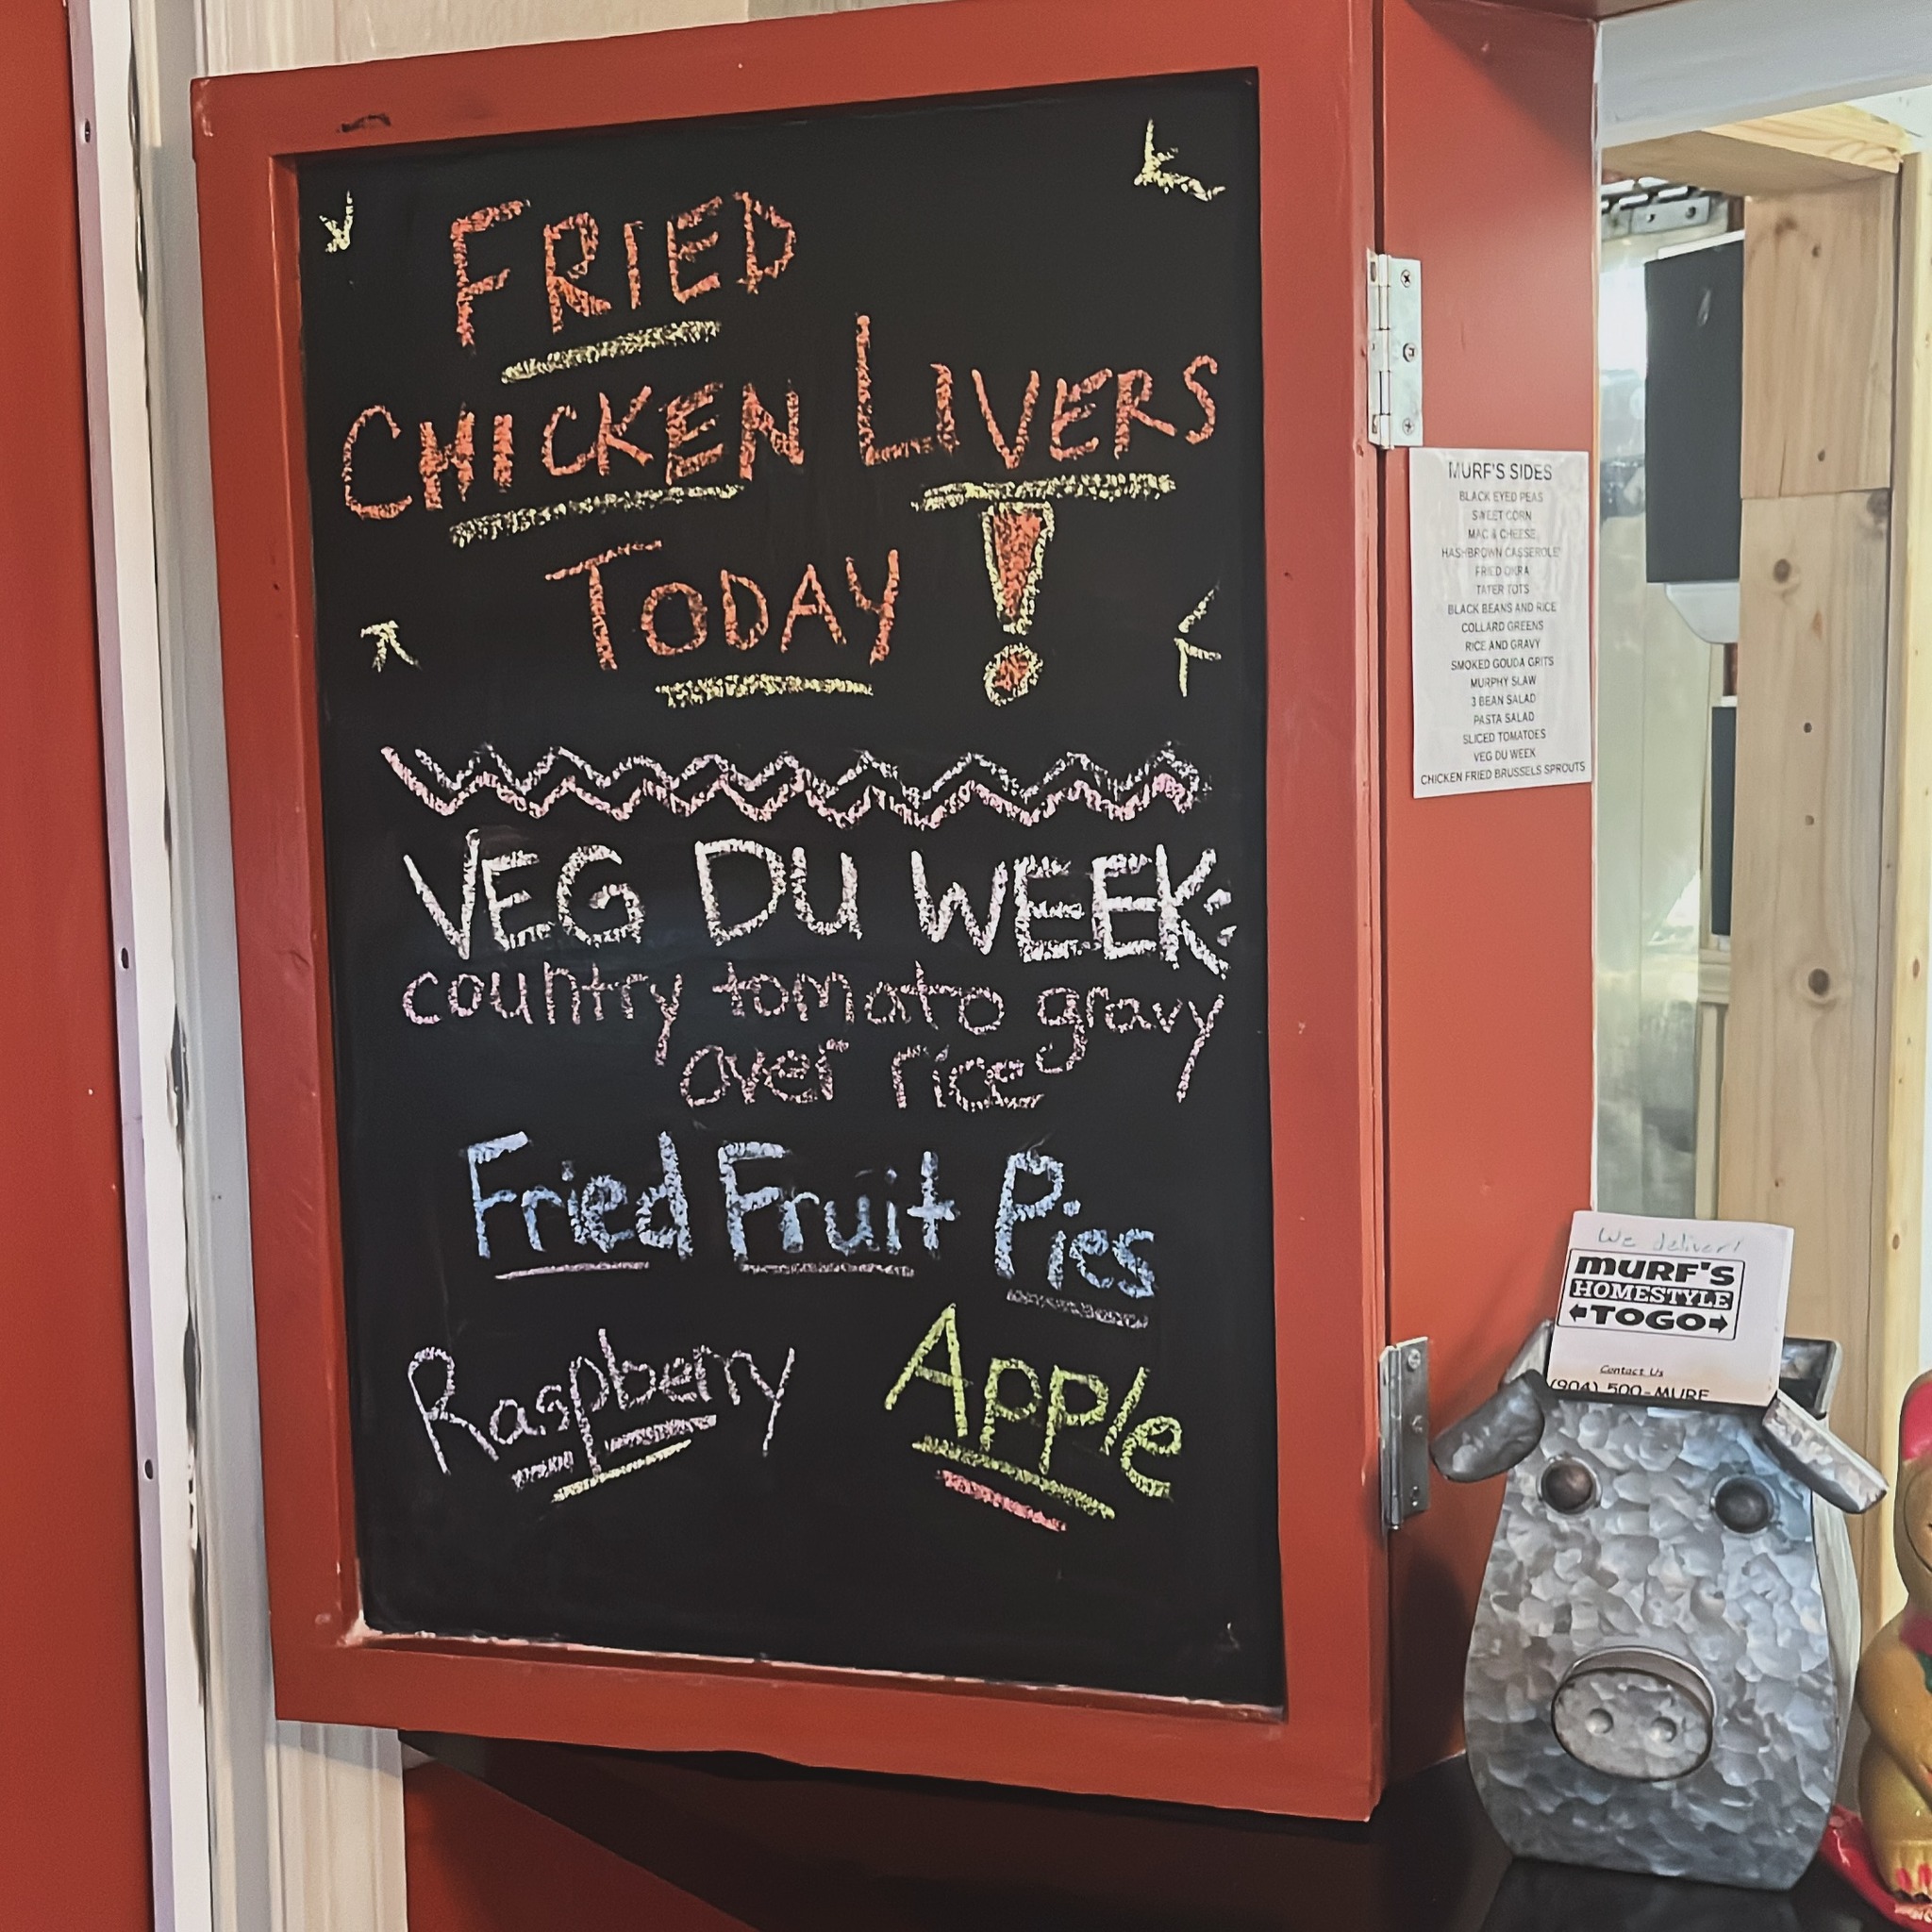 FRIED
CHICKEN LIVERS
TODAY !
VEG DU WEEK:
country tomato gravy
over rice
Fried Fruit Pies
Raspberry Apple
MURF'S SIDES
BLACK EYED PEAS
SWEET CORN
MAC & CHEESE
HASHBROWN CASSEROLE*
FRIED OKRA
TATER TOTS
BLACK BEANS AND RICE
COLLARD GREENS
RICE AND GRAVY
SMOKED GOUDA GRITS
MURPHY SLAW
3 BEAN SALAD
PASTA SALAD
SLICED TOMATOES
VEG DU WEEK
CHICKEN FRIED BRUSSELS SPROUTS
We deliver!
MURF'S
HOMESTYLE
TOGO
Contact Us
(904) 500-MURF